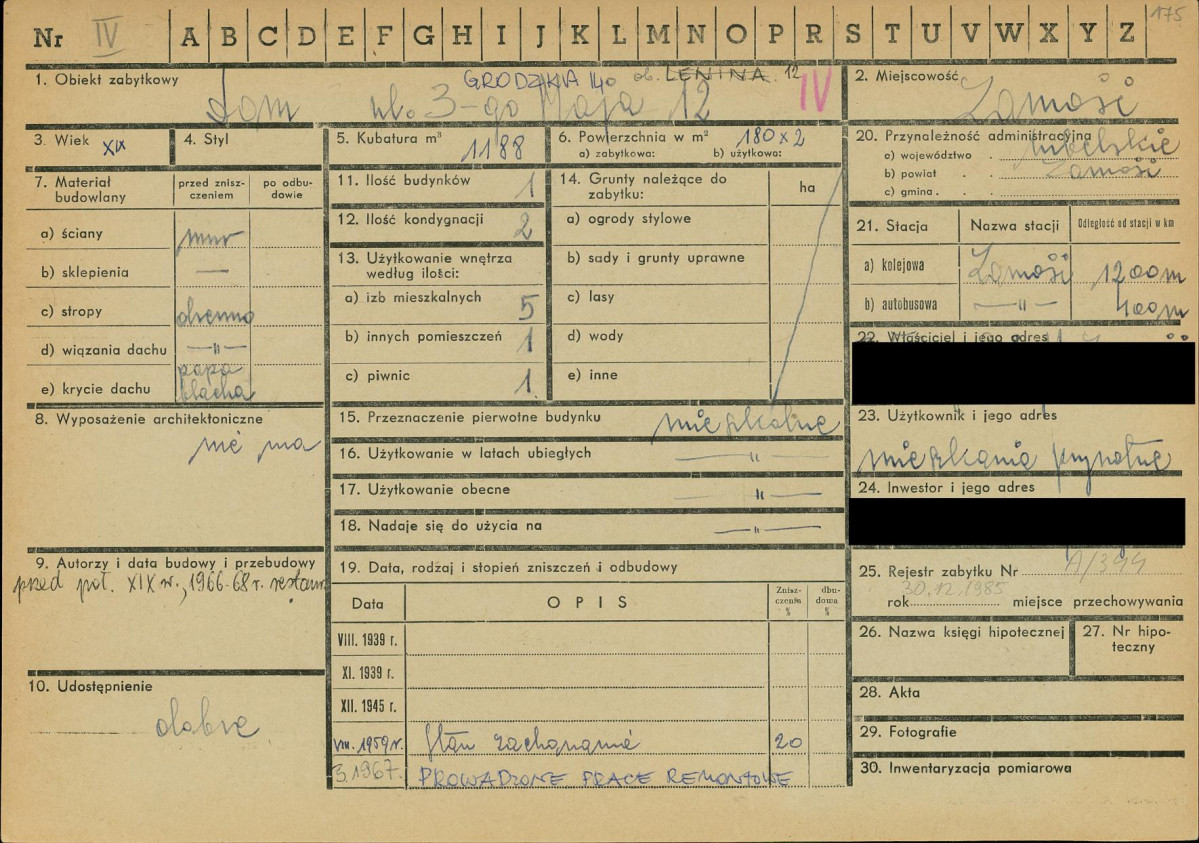 Nr IV A B C D E F G H I J K L M N O P R S T U V W X Y Z 175
1. Obiekt zabytkowy
GRODZKA 140 ob. LENINA 12
dom ul. 3-go Maja 12 IV
2. Miejscowość
Zamość
3. Wiek XIX
4. Styl
5. Kubatura m³ 1188
6. Powierzchnia w m² 180 x 2
a) zabytkowa: b) użytkowa:
20. Przynależność administracyjna
a) województwo lubelskie
b) powiat Zamość
c) gmina
7. Materiał budowlany
przed zniszczeniem
po odbudowie
a) ściany mur
b) sklepienia —
c) stropy drewno
d) wiązania dachu —"—
e) krycie dachu papa blacha
11. Ilość budynków 1
12. Ilość kondygnacji 2
13. Użytkowanie wnętrza według ilości:
a) izb mieszkalnych 5
b) innych pomieszczeń 1
c) piwnic 1
14. Grunty należące do zabytku:
ha
a) ogrody stylowe
b) sady i grunty uprawne
c) lasy
d) wody
e) inne
21. Stacja Nazwa stacji Odległość od stacji w km
a) kolejowa Zamość 1200m
b) autobusowa —"— 400m
22. Właściciel i jego adres
8. Wyposażenie architektoniczne
nie ma
15. Przeznaczenie pierwotne budynku mieszkalne
16. Użytkowanie w latach ubiegłych —"—
17. Użytkowanie obecne —"—
18. Nadaje się do użycia na —"—
23. Użytkownik i jego adres
mieszkania prywatne
24. Inwestor i jego adres
9. Autorzy i data budowy i przebudowy
przed poł. XIX w., 1966-68 r. restaur.
19. Data, rodzaj i stopień zniszczeń i odbudowy
Data OPIS Zniszczenia % dbudowa %
VIII. 1939 r.
XI. 1939 r.
XII. 1945 r.
VIII. 1959 r. Stan zachowania 20
3. 1967. PROWADZONE PRACE REMONTOWE
25. Rejestr zabytku Nr A/394
30.12.1985
rok miejsce przechowywania
26. Nazwa księgi hipotecznej
27. Nr hipoteczny
10. Udostępnienie
dobre
28. Akta
29. Fotografie
30. Inwentaryzacja pomiarowa